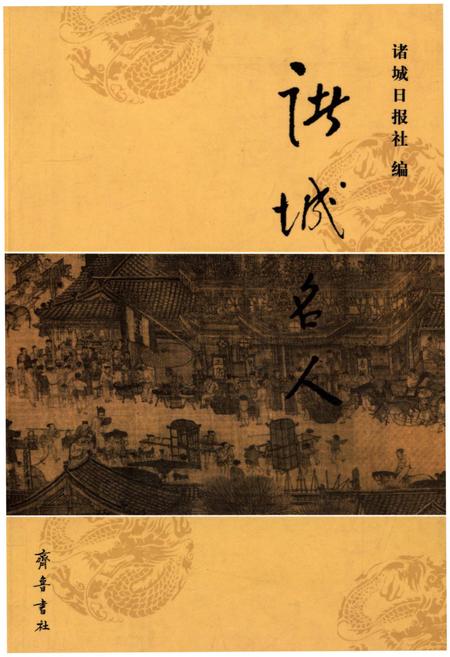 诸城日报社 编
诸城名人
齊鲁書社